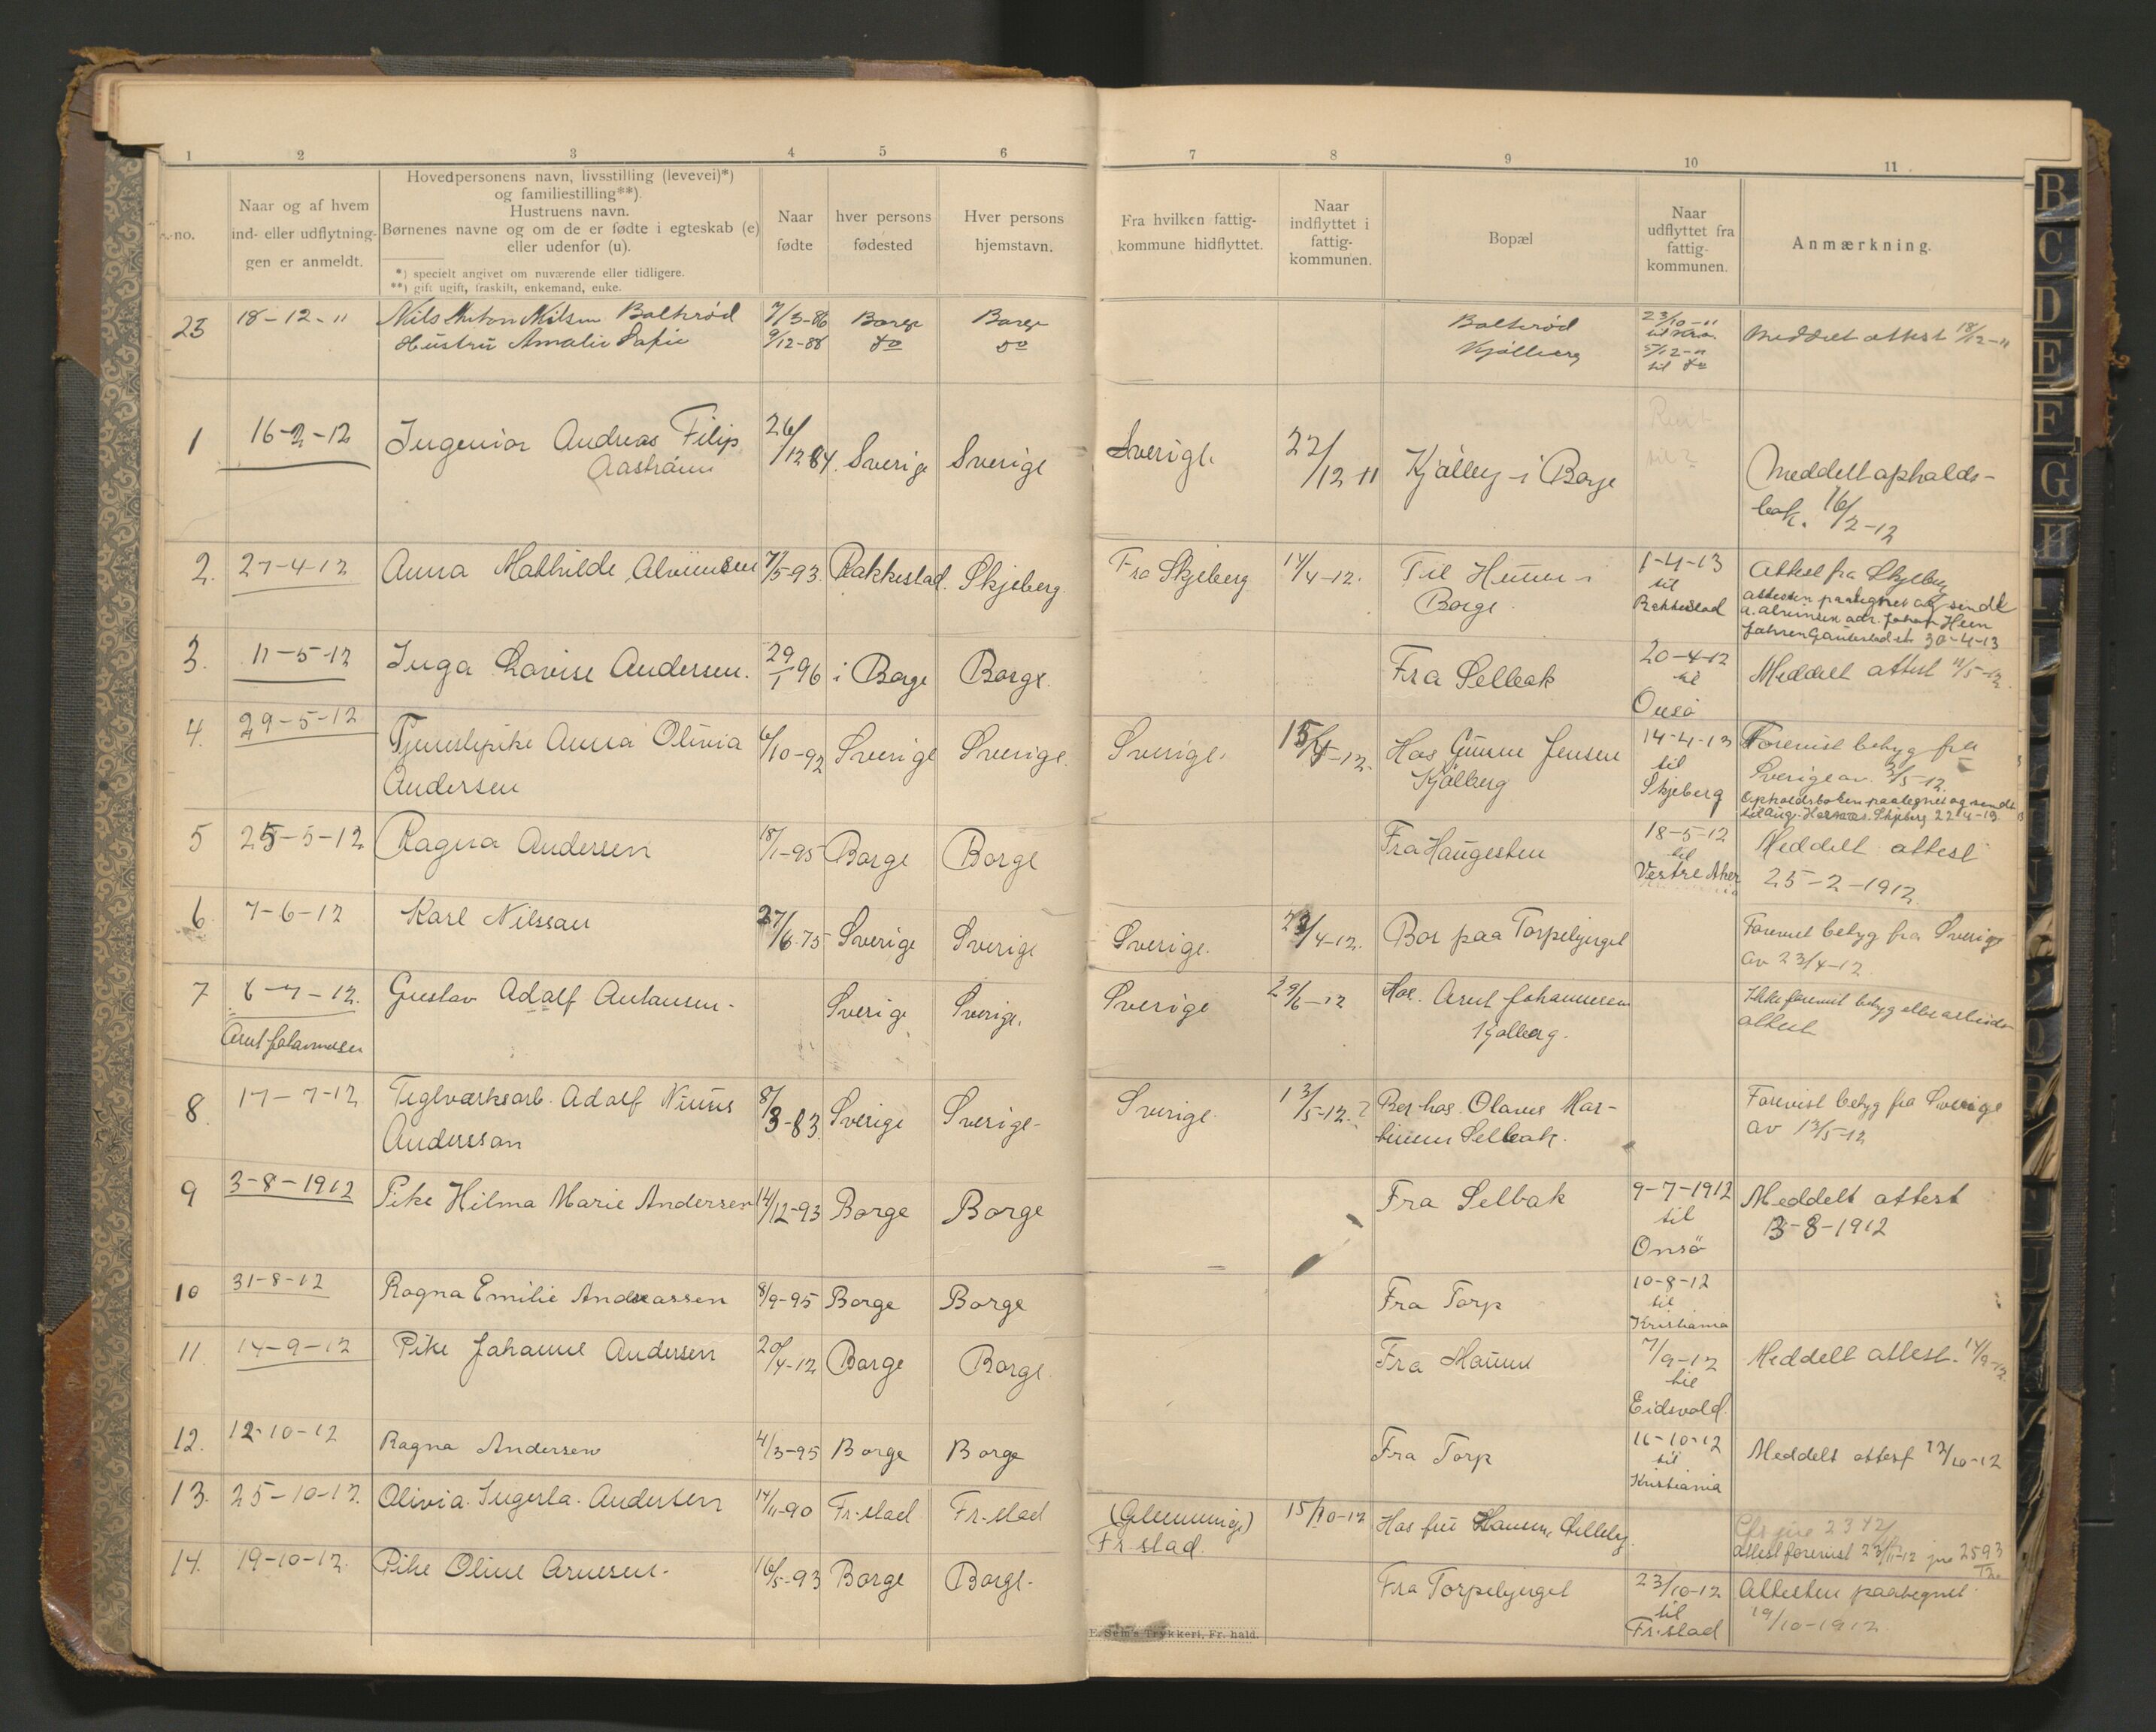 1 2 3 4 5 6 7 8 9 10 11
-no.
Naar og af hvem
ind- eller udflytnin-
gen er anmeldt.
Hovedpersonens navn, livsstilling (levevei)*)
og familiestilling**).
Hustruens navn.
Børnenes navne og om de er fødte i egteskab (e)
eller udenfor (u).
*) specielt angivet om nuværende eller tidligere.
**) gift ugift, fraskilt, enkemand, enke.
Naar
fødte
hver persons
fødested
Hver persons
hjemstavn.
Fra hvilken fattig-
kommune hidflyttet.
Naar
indflyttet i
fattig-
kommunen.
Bopæl
Naar
udflyttet fra
fattig-
kommunen.
Anmærkning.
23 18-12-11 Nils Anton Nilsen Boltrød 7/3-86 Borge Borge Boltrød 23/10-11 Meddelt attest 18/12-11
Hustru Amalie Sofie 9/12-88 do do Kjølberg 5/12-11
til do
1 16-2-12 Ingeniør Andreas Filip 26/12 84. Sverige Sverige Sverige 22/12 11 Kjølberg i Borge
Meddelt opholds-
bok. 16/2-12
2. 27-4-12 Anna Mathilde Alvimsen 7/5-93. Rakkestad. Skjeberg. Fra Skjeberg 14/4-12. Til Hunn i
Borge.
1-4-13
til
Rakkestad
Attest fra Skjeberg
attesten paategnet og sendt
30-4-13
3. 11-5-12 Inga Lovise Andersen. 29/1 96 i Borge Borge. Fra Selbak
20-4-12
til
Onsø
Meddelt attest 11/5-12.
4. 29-5-12 Tjenestepike Anna Olivia
Andersen
6/10-92 Sverige Sverige. Sverige. 15/5-12. Hos Gunnar Jensen
Kjølberg
14-4-13
til
Skjeberg
Forevist betyg fra
Sverige av 3/5-12.
Opholdsboken paategnet og sendt
Skjeberg 22-4-13.
5 25-5-12 Ragna Andersen 18/1-95 Borge Borge Fra Haugesten
18-5-12
til
Vestre Aker
Meddelt attest
25-2-1912.
6 7-6-12 Karl Nilssan 27/6-75 Sverige Sverige Sverige. 23/4-12. Bor paa Torpebjerget
Forevist betyg fra Sverige
av 23/4-12
7 6-7-12. Gustav Adolf Antonsen. Sverige Sverige. Sverige 29/6-12 Hos. Arnt Johannesen
Kjølberg.
Arnt Johannesen
Ikke forevist betyg eller arbeids-
attest
8. 17-7-12 Teglverksarb. Adolf
Andersson
8/3-83. Sverige Sverige- Sverige 13/5-12.? Bor hos. Olaves Mar-
tinsen Selbak.
Forevist betyg fra Sverige
av 13/5-12
9 3-8-1912 Pike Hilma Marie Andersen 14/12-93 Borge Borge Fra Selbak
9-7-1912
til
Onsø
Meddelt attest
3-8-1912
10 31-8-12 Ragna Emilie Andreassen 8/9-95 Borge Borge Fra Torp
10-8-12
til
Kristiania
11. 14-9-12 Pike Johanne Andersen 20/4-12 Borge Borge. Fra Hauen
7/9-12
til
Eidsvold.
Meddelt attest. 14/9-12
12. 12-10-12 Ragna Andersen 4/3-95 Borge Borge Fra Torp
16-10-12
til
Kristiania
Meddelt attest 12/10-12
13. 25-10-12. Olivia Ingerla. Andersen 14/11-90 Fr.stad Fr.stad (Glemminge)
Fr.stad.
15/10-12 Hos fru Hansen, Lilleby.
attest forevist 23/11-12 jno 2593
14. 19-10-12. Pike Oline Arnesen. 16/5-93 Borge Borge- Fra Torpebjerget
23/10-12
til
Fr.stad
Attesten paategnet
19/10-1912
E. Sem's Trykkeri, Fr.hald.
B
C
D
E
F
G
H